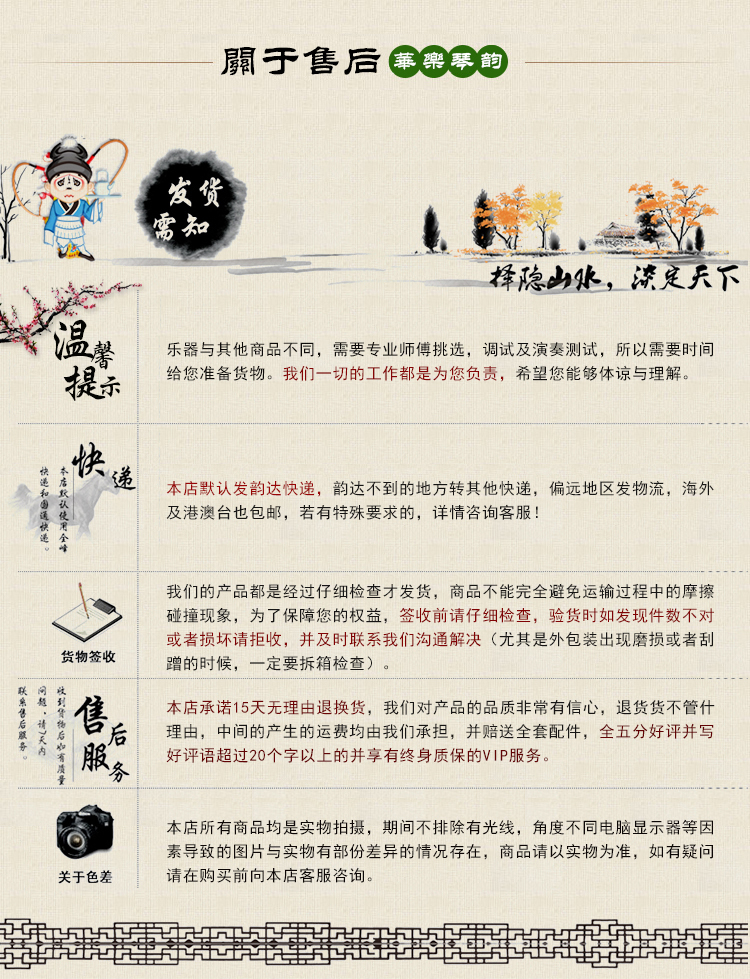 關于售后 華樂琴韵
发货
需知
择隐山水，淡定天下
温馨
提示
乐器与其他商品不同，需要专业师傅挑选，调试及演奏测试，所以需要时间
给您准备货物。我们一切的工作都是为您负责，希望您能够体谅与理解。
快递
本店默认使用全峰
快递和圆通快递。
本店默认发韵达快递，韵达不到的地方转其他快递，偏远地区发物流，海外
及港澳台也包邮，若有特殊要求的，详情咨询客服！
货物签收
我们的产品都是经过仔细检查才发货，商品不能完全避免运输过程中的摩擦
碰撞现象，为了保障您的权益，签收前请仔细检查，验货时如发现件数不对
或者损坏请拒收，并及时联系我们沟通解决（尤其是外包装出现磨损或者刮
蹭的时候，一定要拆箱检查）。
售后
服务
收到货物后如有质量
问题，请7天内
联系售后服务。
本店承诺15天无理由退换货，我们对产品的品质非常有信心，退货货不管什
理由，中间的产生的运费均由我们承担，并赔送全套配件，全五分好评并写
好评语超过20个字以上的并享有终身质保的VIP服务。
关于色差
本店所有商品均是实物拍摄，期间不排除有光线，角度不同电脑显示器等因
素导致的图片与实物有部份差异的情况存在，商品请以实物为准，如有疑问
请在购买前向本店客服咨询。